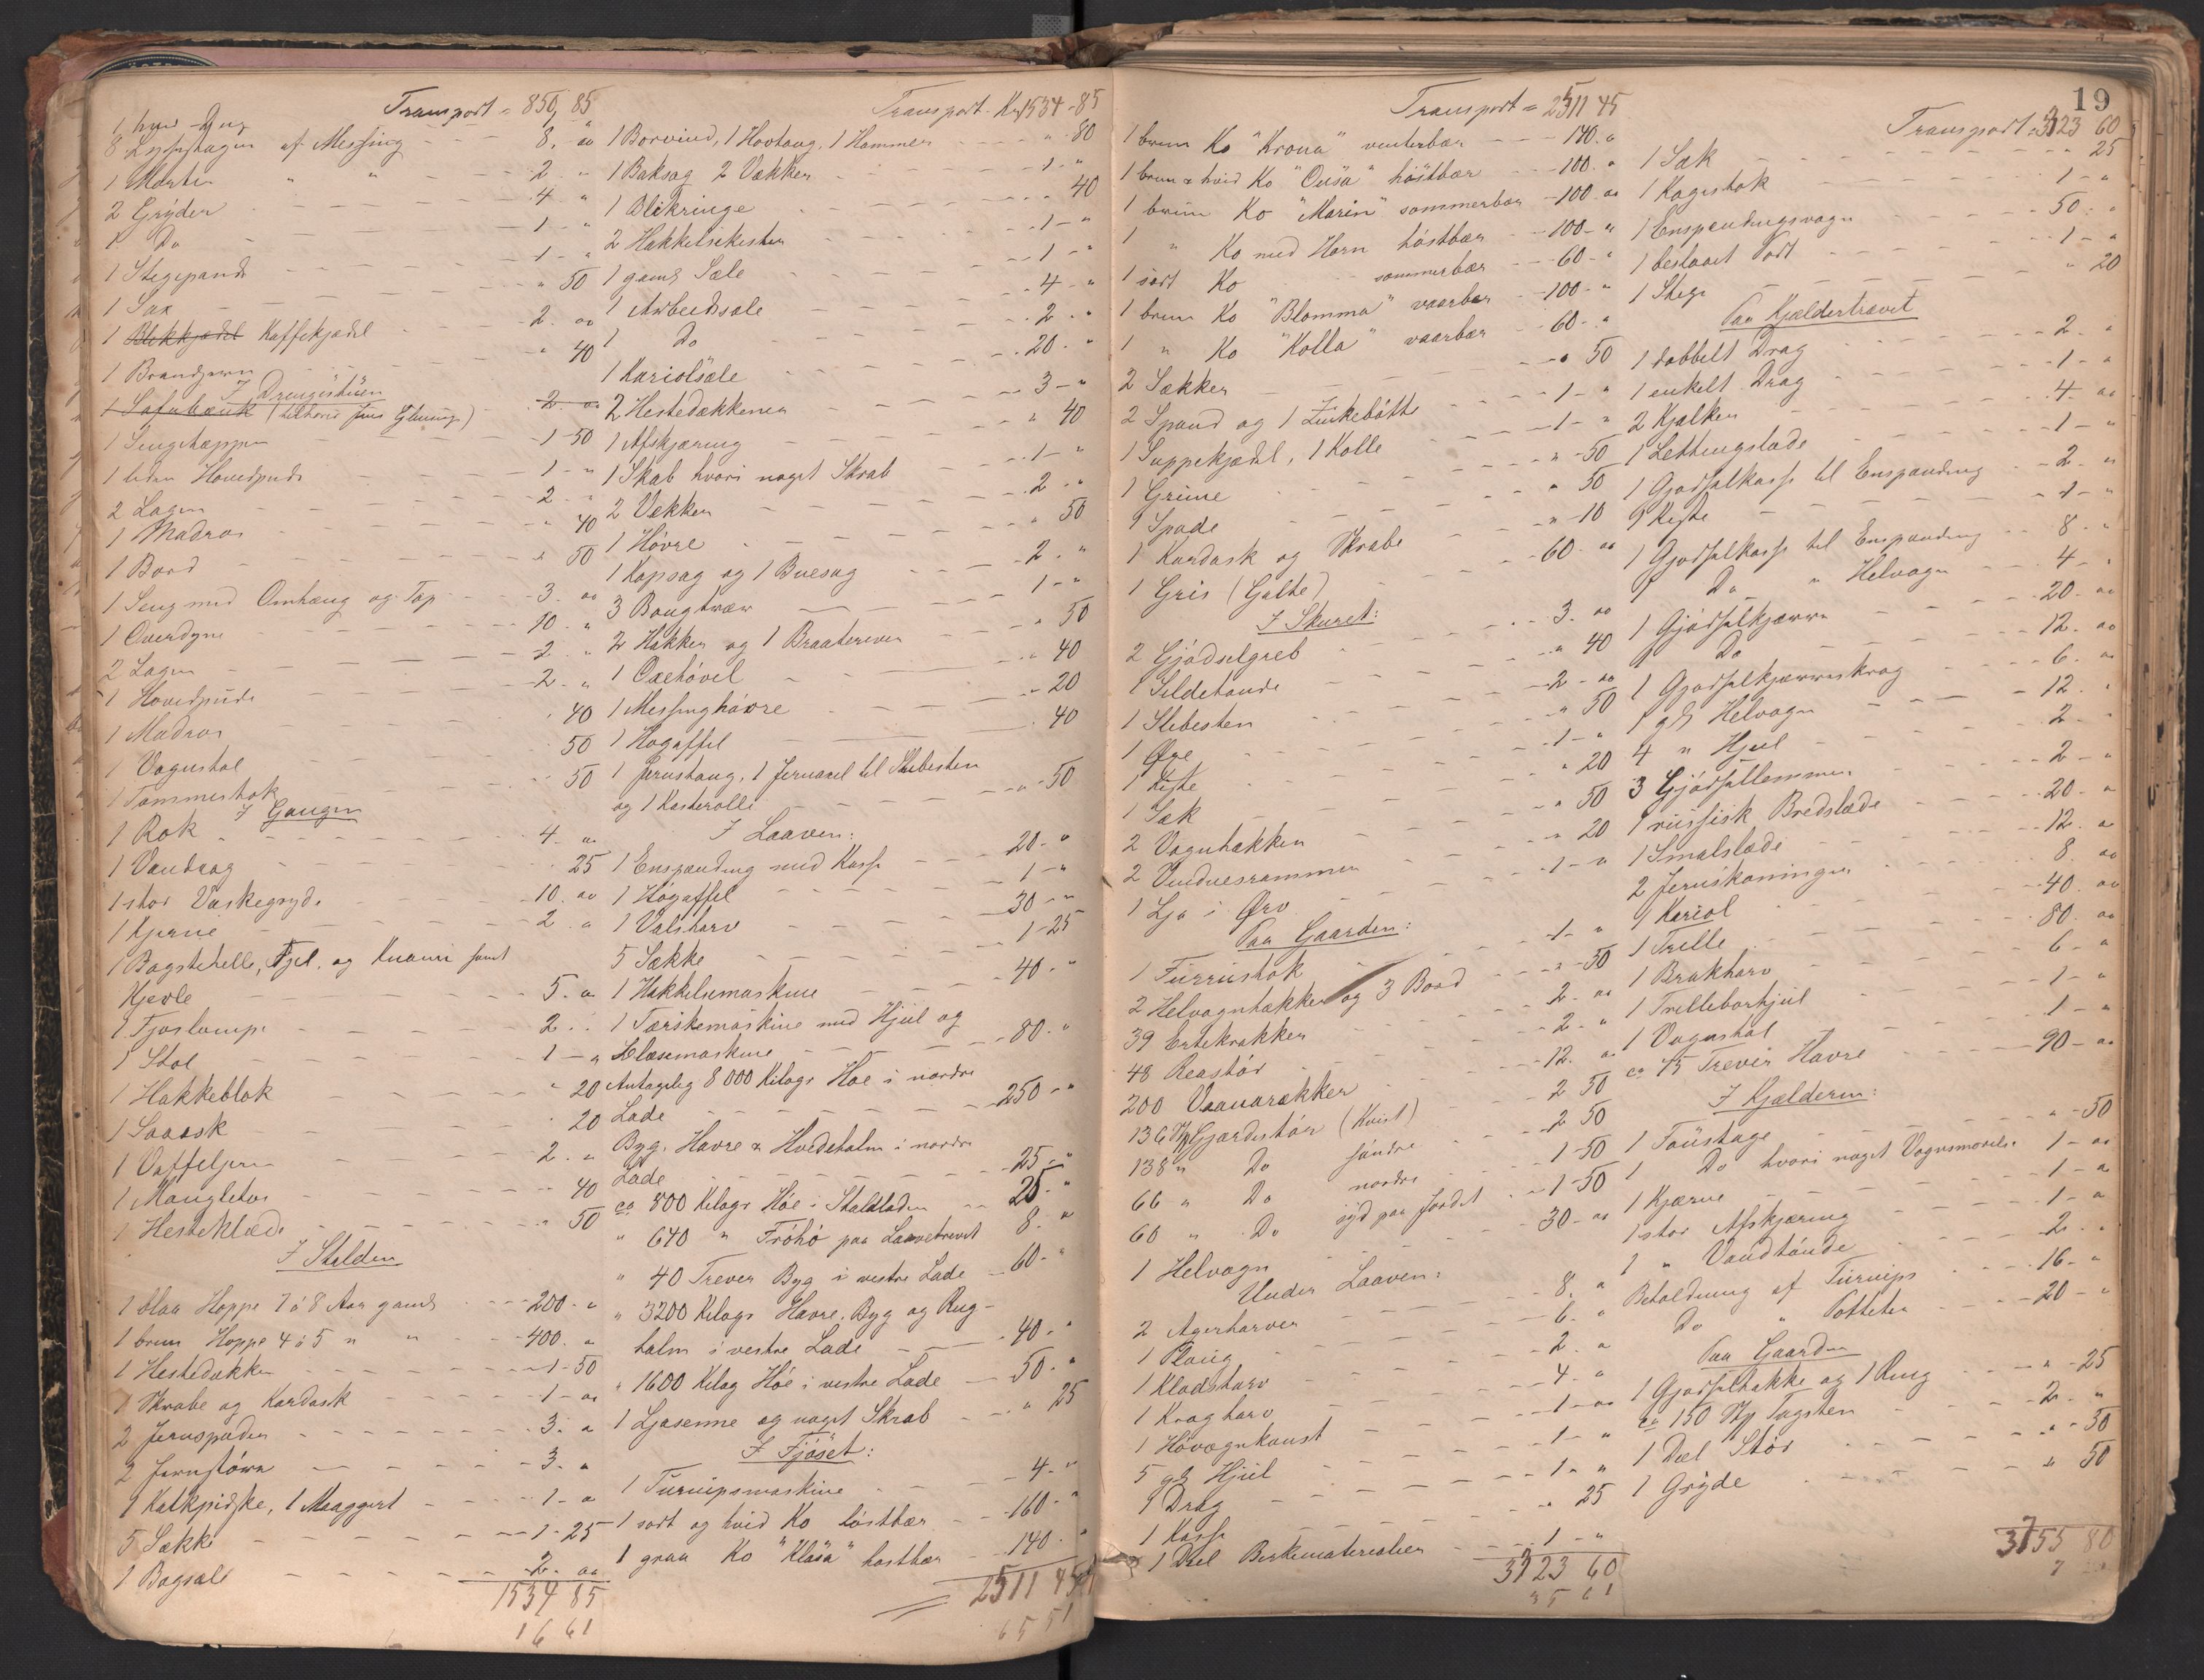 Transport = 850, 85
8 Lysestager af Messing - - 8, 00
1 Morter " " - - 2 - "
2 Gryder - - 4 "
1 Do - 1 - "
1 Stegepande - - 1 - "
1 Sax - - " 50
1 Kaffekjedel - - 2. 00
1 Brandjern - - " 40
I Drengestuen
1 Sofabænk (tilhører Jens) - - 2 - 00
1 Sengetæppe - - 1 - 50
1 liden Hovedpude - - 1 - "
2 Lagen - - 2 - "
1 Madras - - " 40
1 Bord - - " 50
1 Seng med Omhæng og Tap - - 3. 00
1 Overdyne - - 10. "
2 Lagen - - 2 - "
1 Hovedpude - - 2 - "
1 Madras - - " 40
1 Vognstol - - 50
1 Tommestok - - 50
I Gangen
1 Rok - - 4. "
1 Vandrag - - 25
1 stor Vaskegryde - - 10. 00
1 Kjerne - - 2. "
1 Bagstehelle, Fjel, og samt
Kjevle - - 5. 00
1 Fjøslampe - - 2. "
1 Stol - - 1 - "
1 Hakkeblok - - " 20
1 - - 20
1 Vaffeljern - - 2. "
1 Mangletøi - - 40
1 Hesteklæde - - " 50
I Stalden
1 blaa Hoppe 7 à 8 Aar gamel - - 200. "
1 brun Hoppe 4 à 5 " " - - 400. "
1 Hestedækken - - 1 - 50
1 Skrabe og Kardask - - 1 - 00
2 Jernspader - - 3. "
2 Jernstører - - 3. "
1 Kalkpidske, 1 - - 1 - "
5 Sække - - 1 - 25
1 Bogsale - - 2. 00
1534 85
16 61
Transport. Kr. 1534 - 85
1 Borvind, 1 Hovtang, 1 Hammer - - " 80
1 Baksag 2 Vækker - - 1 - "
1 Blikringe - - " 40
2 Hakkelsekister - - 1 - "
1 gaml Sæle - - 1 - "
1 Arbeidssæle - - 4 - "
1 Do - - 2. "
1 Kariolsæle - - 20. "
2 Hestedækkener - - 3 - "
1 Afskjæring - - " 40
1 Skab hvori noget Skrab - - 1 - "
2 Vækker - - 2. "
1 Høvre - - " 50
1 Kapsag og 1 Buesag - - 2. "
3 Bougtrær - - 1 - "
2 Hakker og 1 Braateriver - - " 50
1 Oxehövel - - " 40
1 Messinghøvre - - " 20
1 Høgaffel - - 40
1 Jernstang, 1 Jernaxel til Slibesten
og 1 Kasterolle - - " 50
I Laaven:
1 Enspænding med Kasse - - 20. "
1 Høgaffel - - 1 - "
1 Valsharv - - 30 - "
5 Sække - - 1 - 25
1 Hakkelsemaskine - - 40. "
1 Tærskemaskine med Hjul og
Blæsemaskine - - 80. "
Antagelig 8000 Kilogr Høe i nordre
Lade - - 250 - "
Byg, Havre & Hvedehalm i nordre
Lade - - 25 - "
ca 800 Kilogr Høe i Staldladen - - 25. "
" 640 " Frøhø paa Laavetrevet 8. "
" 40 Trever Byg i vestre Lade - 60. "
" 3200 Kilogr Havre, Byg og Rug-
halm i vestre Lade - - 40. "
" 1600 Kilog Høe i vestre Lade - 50. "
1 Ljasenne og noget Skrab - - " 25
I Fjøset:
1 Turnipsmaskine - - 4. "
1 sort og hvid Ko høstbær - - 160 - "
1 graa Ko "Klara" høstbær - 140. "
2511 45
65 51
Transport = 2511 45
1 brun Ko "Krona" vinterbær - - 140. "
1 brun & hvid Ko høstbær - - 100. "
1 brun Ko "Marin" sommerbær - 100. 00
1 " Ko med Horn høstbær - - 100 - "
1 sort Ko sommerbær - - 60. "
1 brun Ko "Blomma" vaarbær - 100. "
1 " Ko "Kolla" vaarbær - 60. "
2 Sækker - - " 50
2 Spand og 1 Zinkebøtte - - 1 - "
1 Suppekjedel, 1 Kolle - - 1 - "
1 Grime - - " 50
1 Spade - - " 50
1 Kardask og Skrabe - - " 10
1 Gris (Galte) - - 60. 00
I Skuret:
2 Gjødselgreb - - 3. 00
1 Sildetønde - - " 40
1 Slibesten - - 2 - 00
1 Øxe - - " 50
1 Kiste - - 1 - "
1 Sæk - - " 20
2 Vognhækker - - " 50
2 Vinduesrammer - - " 20
1 Lja i Ørv - - 1 - "
Paa Gaarden:
1 Furrustok - - 1 - "
2 Helvognhækker og 3 Bord - - " 50
39 Ertekrakker - - 2. 00
48 Reastør - - 2. "
200 - - 12. 00
136 Stk Gjærdestør (Kvist) - - 2 50
138 " Do søndre - - 2 50
66 " Do nordre - - 1 - 50
60 " Do syd paa Jordet - 1 - 50
1 Helvogn - - 30 - 00
Under Laaven:
2 Agerharver - - 8. "
1 Ploug - - 6. "
1 Klodsharv - - 2. "
1 Krogharv - - 4. "
1 - - 1 - 00
5 gl Hjul - - 1 - "
1 Drag - - 1 - "
1 Kasse - - " 25
1 Deel - - 1 - "
3123 60
35 61
19
Transport = 3123 60
1 Sæk - - 25
1 Kagestok - - 1 - "
1 Enspændingsvogn - - 50. "
1 beslaaet - - 1 - "
1 Stige - - " 20
Paa Kjældertrævet
1 dobbelt Drag - - 2. "
1 enkelt Drag - - 1 - "
2 Kjelker - - 4. 00
1 - - 1 - "
1 Gjødselkasse til Enspænding - 2. "
1 Kiste - - 1 - "
1 Gjødselkasse til Enspænding - 8. "
1 Do " Helvogn - - 4 - "
1 Gjødselkjærre - - 20. 00
1 Do - - 12. 00
1 Gjødselkjærrekrog - - 6. 00
1 gl Helvogn - - 12. "
4 " Hjul - - 2 - "
3 Gjødsellemmer - - 2 - "
1 russisk Bredslæde - - 20 - "
1 Smalslæde - - 12. "
2 - - 8. 00
1 Kariol - - 40. 00
1 Trille - - 80. 00
1 Brakharv - - 6 - "
1 Trillebørhjul - - 1 - "
1 Vognstol - - 1 - "
ca 45 Trever Havre - - 90 - 00
I Kjælderen:
1 Foustage - - " 50
1 Do hvori noget Vognsmørelse 1 - 00
1 Kjærne - - 1 - "
1 stor Afskjæring - - 1 - "
1 " Vandtønde - - 2. "
Beholdning af Turnips - - 16 - "
Do " Potteter - - 20 - "
Paa Gaarden
1 Gjødselhakke og 1 Ring - - " 25
ca 150 Stk Tagsten - - 2. "
1 Deel Stør - - " 50
1 Gryde - - " 50
3755 80